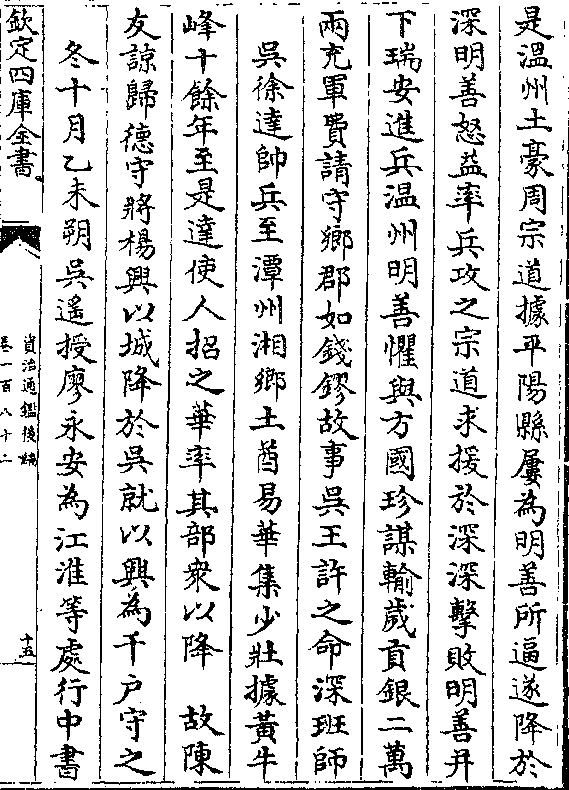 是溫州土豪周宗道據平陽縣屢為明善所逼遂降於
深明善怒益率兵攻之宗道求援於深深擊敗明善并
下瑞安進兵温州明善懼與方國珍謀輸歲貢銀二萬
兩充軍費請守鄉郡如錢鏐故事吳王許之命深班師
吳徐達帥兵至潭州湘鄉土酋易華集少壯據黃牛
峰十餘年至是達使人招之華率其部衆以降　故陳
友諒歸德守將楊興以城降於吳就以興為千户守之
冬十月乙未朔吳遙授廖永安為江淮等處行中書
欽定四庫全書
資治通鑑後編
卷一百八十二
十五